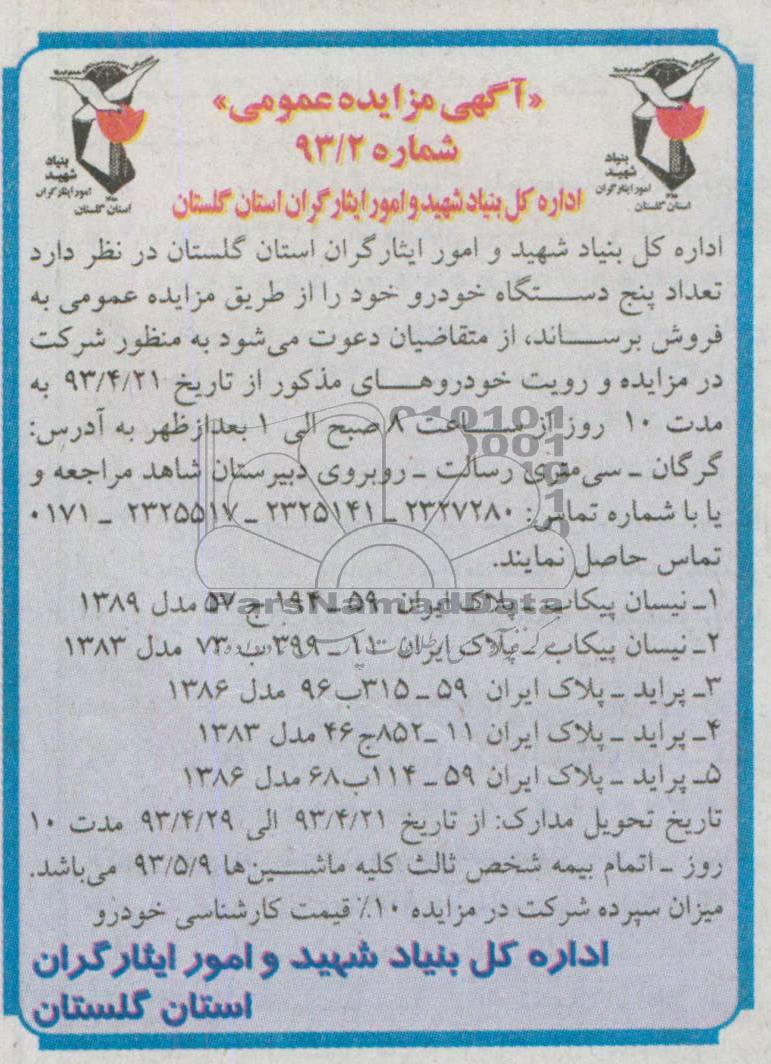 «آگهی مزایده عمومی»
شماره ۹۳/۲
اداره کل بنیاد شهید و امور ایثارگران استان گلستان
بنیاد
شهید
امور ایثارگران
استان گلستان
بنیاد
شهید
امور ایثارگران
استان گلستان
اداره کل بنیاد شهید و امور ایثارگران استان گلستان در نظر دارد
تعداد پنج دستگاه خودرو خود را از طریق مزایده عمومی به
فروش برساند، از متقاضیان دعوت می‌شود به منظور شرکت
در مزایده و رویت خودروهای مذکور از تاریخ ۹۳/۴/۲۱ به
مدت ۱۰ روز از ساعت ۸ صبح الی ۱ بعدازظهر به آدرس:
گرگان ـ سی‌متری رسالت ـ روبروی دبیرستان شاهد مراجعه و
یا با شماره تماس: ۲۳۲۷۲۸۰ ـ ۲۳۲۵۱۴۱ ـ ۲۳۲۵۵۱۷ ـ ۰۱۷۱
تماس حاصل نمایند.
۱ـ نیسان پیکاب ـ پلاک ایران ۵۹ ـ ۱۹۴ ج ۵۷ مدل ۱۳۸۹
۲ـ نیسان پیکاب ـ پلاک ایران ۱۱ ـ ۳۹۹ ب ۷۳ مدل ۱۳۸۳
۳ـ پراید ـ پلاک ایران ۵۹ ـ ۳۱۵ب۹۶ مدل ۱۳۸۶
۴ـ پراید ـ پلاک ایران ۱۱ ـ۸۵۲ج۴۶ مدل ۱۳۸۳
۵ـ پراید ـ پلاک ایران ۵۹ ـ ۱۱۴ب۶۸ مدل ۱۳۸۶
تاریخ تحویل مدارک: از تاریخ ۹۳/۴/۲۱ الی ۹۳/۴/۲۹ مدت ۱۰
روز ـ اتمام بیمه شخص ثالث کلیه ماشین‌ها ۹۳/۵/۹ می‌باشد.
میزان سپرده شرکت در مزایده ۱۰٪ قیمت کارشناسی خودرو
اداره کل بنیاد شهید و امور ایثارگران
استان گلستان
ParsNamadData